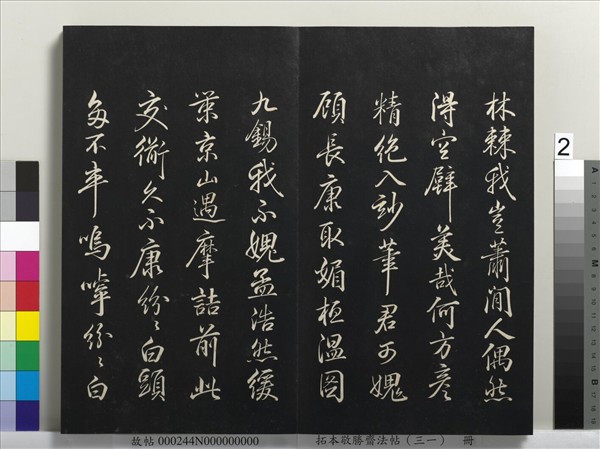 林棘我豈蕭閒人偶然
得空壁美哉何方彥
精絕入妙華君可愧
顧長康取媚桓溫圖
九錫我不媿孟浩然緩
策京山遇摩詰前此
交衢久不康紛〻白頭
多不率嗚嘷紛〻白
2
A
M
B
故帖 000244N000000000
拓本敬勝齋法帖（三一） 冊